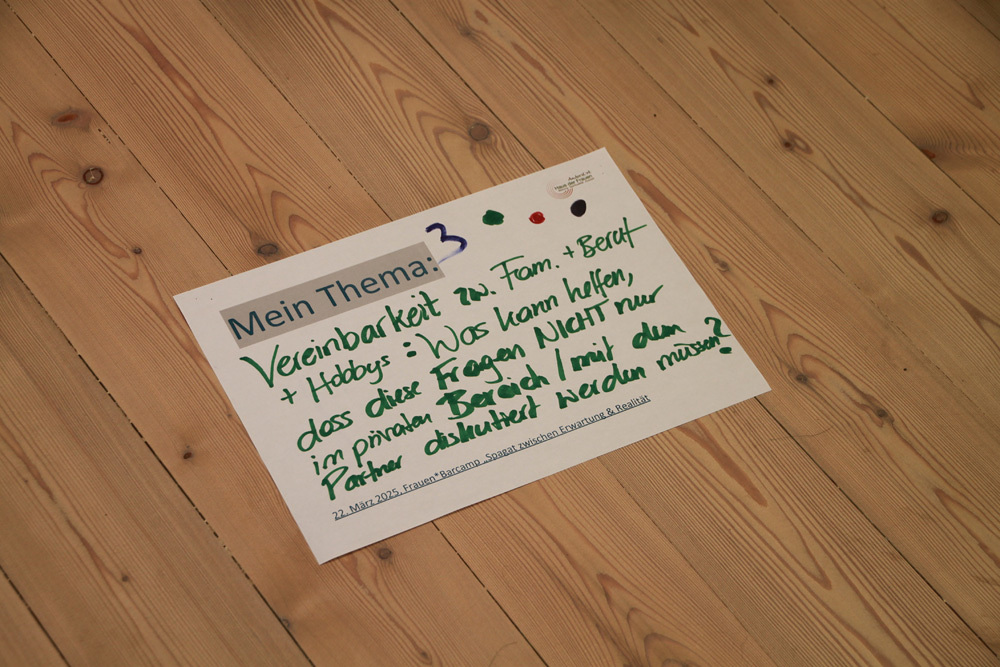 Haus der Frauen
Mein Thema: 3
Vereinbarkeit zw. Fam. + Beruf
+ Hobbys : Was kann helfen,
dass diese Fragen NICHT nur
im privaten Bereich / mit dem
Partner diskutiert werden müssen?
22. März 2025, Frauen*Barcamp „Spagat zwischen Erwartung & Realität